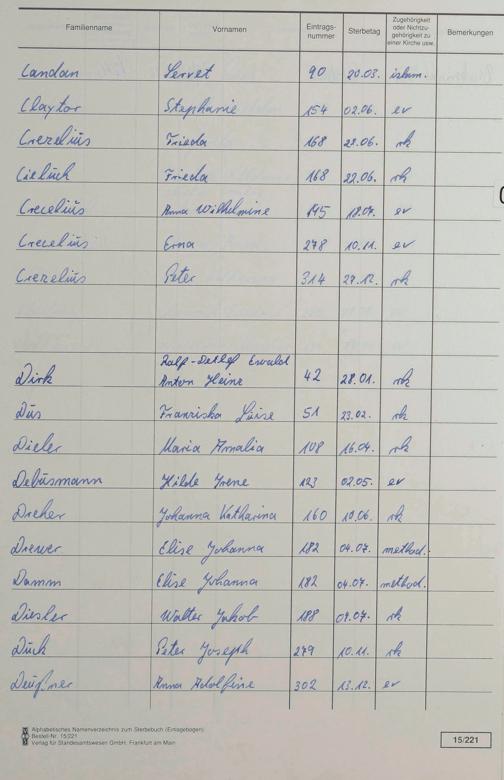 Familienname Vornamen Eintrags-nummer Sterbetag Zugehörigkeit oder Nichtzu-gehörigkeit zu einer Kirche usw. Bemerkungen
Candan Servet 90 20.03. islam.
Claytor Stephanie 154 02.06. ev
Crezelius Frieda 168 22.06. rk
Cieluch Frieda 168 22.06. rk
Crecelius Anna Wilhelmine 195 18.07. ev
Crecelius Erna 278 10.11. ev
Crezelius Peter 314 27.12. rk
Ralf-Detlef Ewald
Dirk Anton Heinz 42 28.01. rk
Düs Franziska Luise 51 23.02. rk
Dieler Maria Amalia 108 16.04. rk
Debüsmann Hilde Irene 123 02.05. ev
Dreher Johanna Katharina 160 10.06. rk
Drewer Elise Johanna 182 04.07. method.
Damm Elise Johanna 182 04.07. method.
Diesler Walter Jakob 188 07. rk
Dück Peter Joseph 279 10.11. rk
Deußner Anna Adolfine 302 13.12. ev
Alphabetisches Namenverzeichnis zum Sterbebuch (Einlagebogen)
Bestell-Nr. 15/221
Verlag für Standesamtswesen GmbH. Frankfurt am Main
15/221